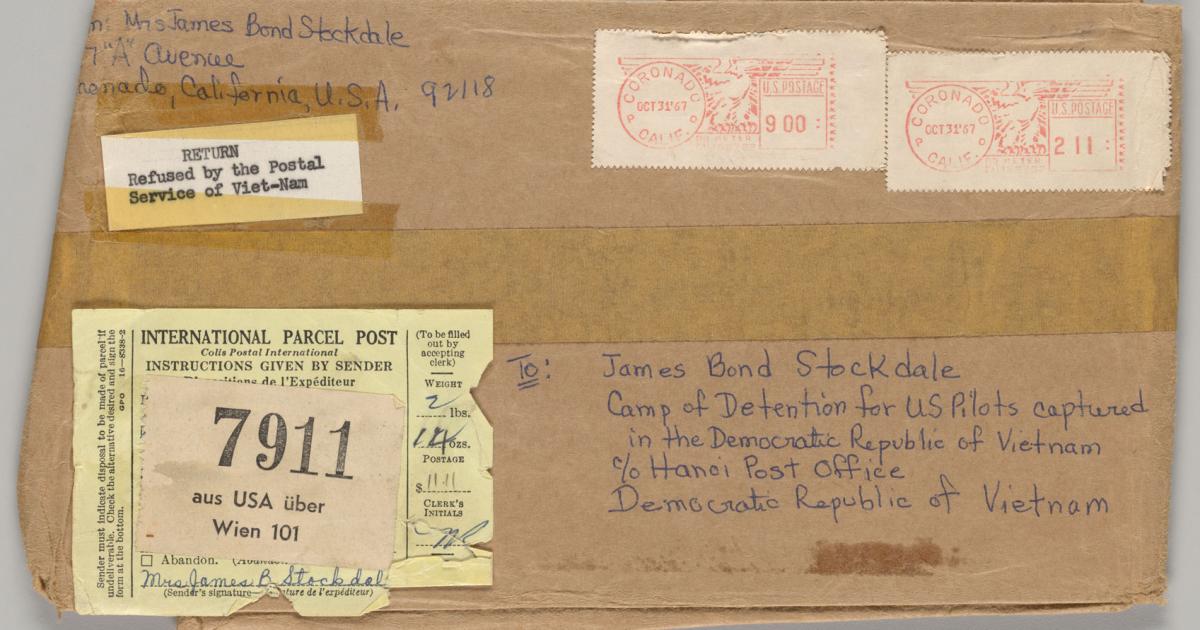 Mrs James Bond Stockdale
"A" Avenue
California, U.S.A. 92118
RETURN
Refused by the Postal
Service of Viet-Nam
CORONADO
OCT 31 '67
CALIF.
U.S. POSTAGE
9 00
CORONADO
OCT 31 '67
CALIF.
U.S. POSTAGE
2 11
Sender must indicate disposal to be made of parcel if
undeliverable. Check the alternative desired and sign the
form at the bottom. GPO 16—8338-2
INTERNATIONAL PARCEL POST
Colis Postal International
INSTRUCTIONS GIVEN BY SENDER
de l'Expéditeur
7911
aus USA über
Wien 101
Abandon.
Mrs James B Stockdal
(Sender's signature— de l'expéditeur)
(To be filled
out by
accepting
clerk)
WEIGHT
2 lbs.
ozs.
POSTAGE
$ 11.11
CLERK'S
INITIALS
To:
James Bond Stockdale
Camp of Detention for US Pilots captured
in the Democratic Republic of Vietnam
c/o Hanoi Post Office
Democratic Republic of Vietnam